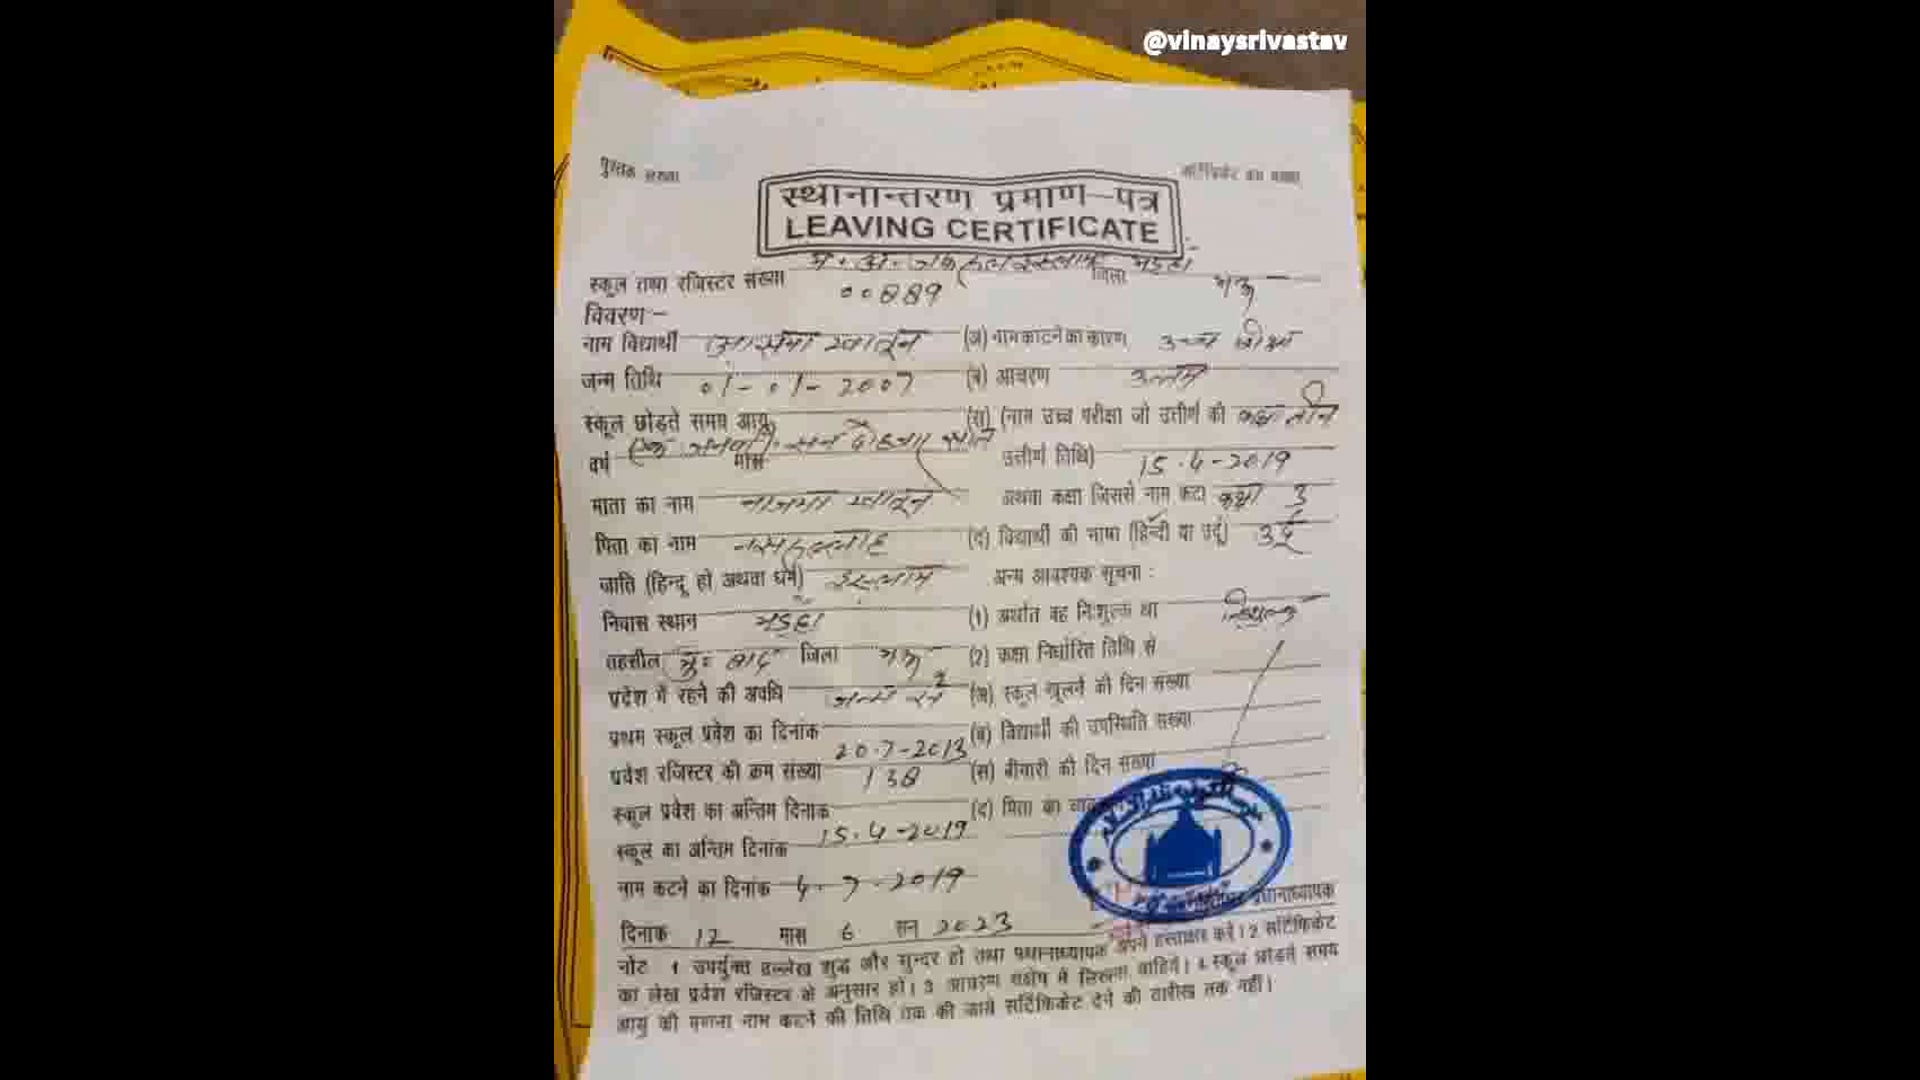 @vinaysrivastav
पुस्तक संख्या
स्थानान्तरण प्रमाण-पत्र
LEAVING CERTIFICATE
स्कूल तथा रजिस्टर संख्या जिला मऊ
00889
विवरण-
नाम विद्यार्थी खातून (अ) नाम काटने का कारण उच्च शिक्षा
जन्म तिथि 01-01-2007 (ब) आचरण उत्तम
स्कूल छोड़ते समय आयु (स) (नाम उच्च परीक्षा जो उत्तीर्ण की कक्षा तीन
एक जनवरी सन दो हजार सात
वर्ष मास उत्तीर्ण तिथि) 15.4-2019
माता का नाम नाजमा खातून अथवा कक्षा जिससे नाम कटा कक्षा 3
पिता का नाम (द) विद्यार्थी की भाषा (हिन्दी या उर्दू) उर्दू
जाति (हिन्दू हो अथवा धर्म) इस्लाम अन्य आवश्यक सूचना :
निवास स्थान (1) अर्थात वह निःशुल्क था निःशुल्क
तहसील जिला मऊ (2) कक्षा निर्धारित तिथि से
प्रदेश में रहने की अवधि जन्म से (अ) स्कूल खुलने की दिन संख्या
प्रथम स्कूल प्रवेश का दिनांक 20-7-2013 (ब) विद्यार्थी की उपस्थिति संख्या
प्रवेश रजिस्टर की क्रम संख्या 138 (स) बीमारी की दिन संख्या
स्कूल प्रवेश का अन्तिम दिनांक (द) पिता का
स्कूल का अन्तिम दिनांक 15-4-2019
नाम कटने का दिनांक 4-7-2019
प्रधानाध्यापक
दिनांक 12 मास 6 सन 2023
नोट 1 उपर्युक्त उल्लेख शुद्ध और सुन्दर हो तथा प्रधानाध्यापक अपने हस्ताक्षर करें। 2 सर्टिफिकेट
का लेख प्रवेश रजिस्टर के अनुसार हों। 3 आचरण संक्षेप में लिखना चाहिये। 4 स्कूल छोड़ते समय
आयु की गणना नाम कटने की तिथि तक की जाये सर्टिफिकेट देने की तारीख तक नहीं।